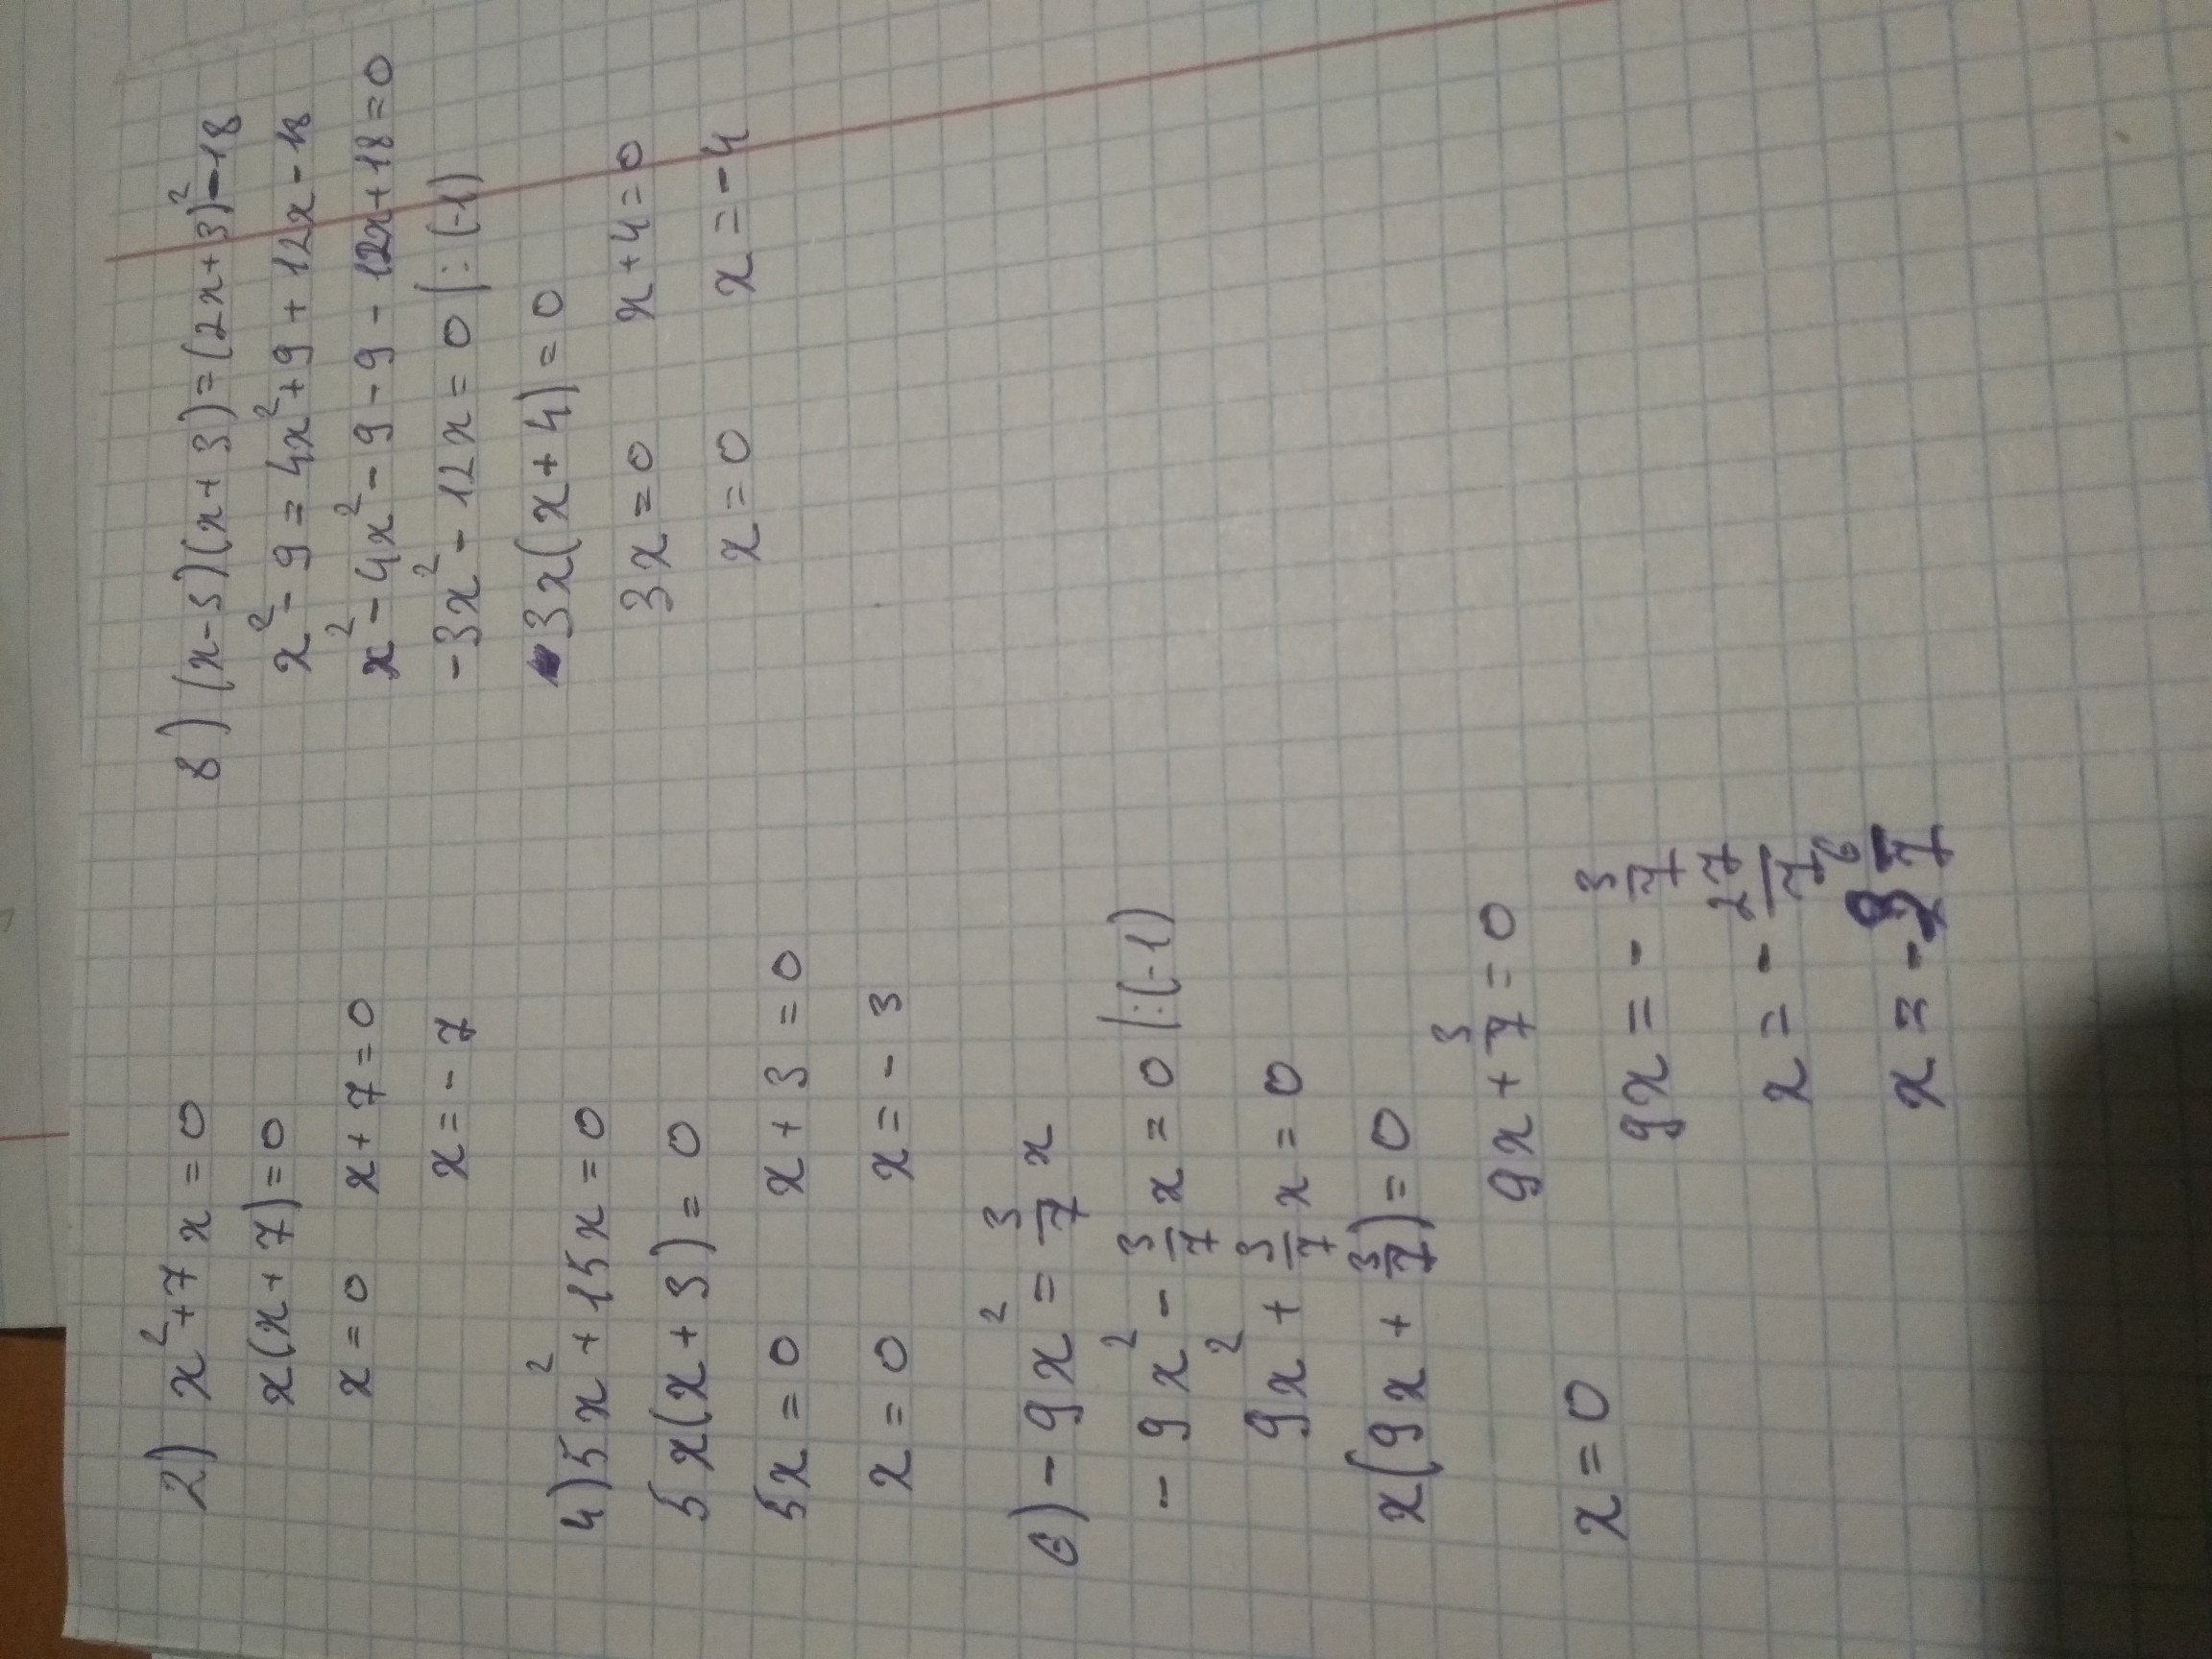 2) x²+7x=0
x(x+7)=0
x=0 x+7=0
x=-7
4) 5x²+15x=0
5x(x+3)=0
5x=0 x+3=0
x=0 x=-3
6) -9x²=3/7 x
-9x²-3/7 x=0 |:(-1)
9x²+3/7 x=0
x(9x+3/7)=0
9x+3/7=0
x=0
9x=-3/7
x=-27/7
x=-3 6/7
8) (x-3)(x+3)=(2x+3)²-18
x²-9=4x²+9+12x-18
x²-4x²-9-9-12x+18=0
-3x²-12x=0 |:(-1)
3x(x+4)=0
3x=0 x+4=0
x=0 x=-4